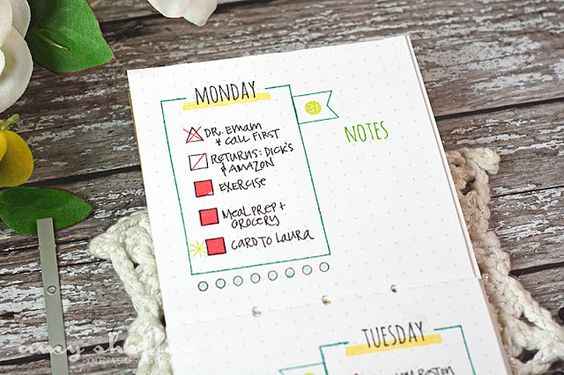 MONDAY
DR. EMAM
& CALL FIRST
RETURNS: DICK'S
& AMAZON
EXERCISE
MEAL PREP +
GROCERY
CARD TO LAURA
31
NOTES
TUESDAY